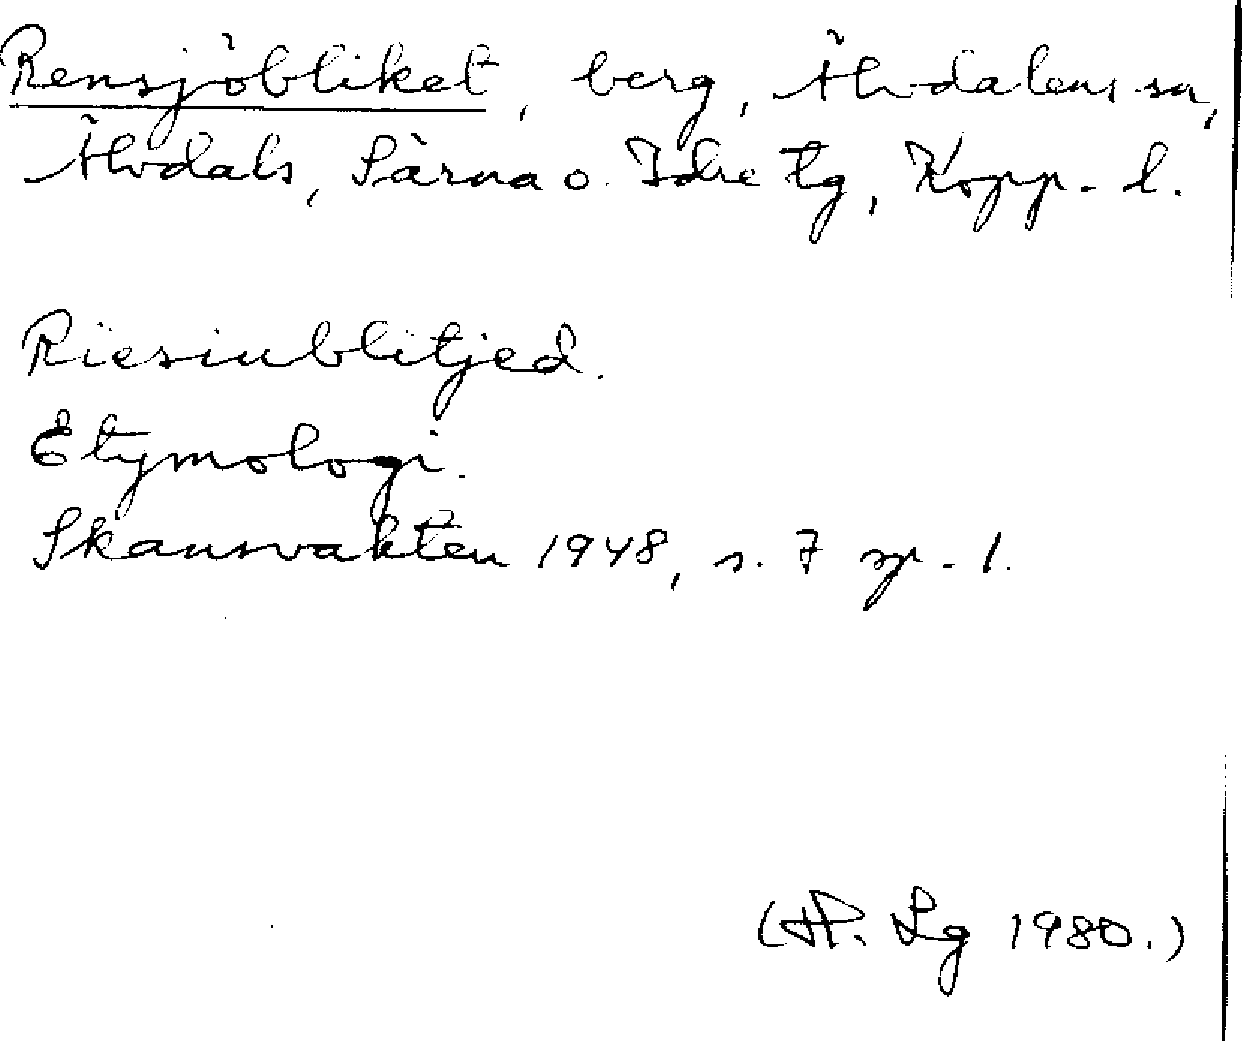 Rensjöbliket, berg, Älvdalens sn,
Älvdals, Särna o. Idre tg, Kopp. l.
Riesiublitjed.
Etymologi.
Skansvakten 1948, s. 7 sp. 1.
Lg 1980.)